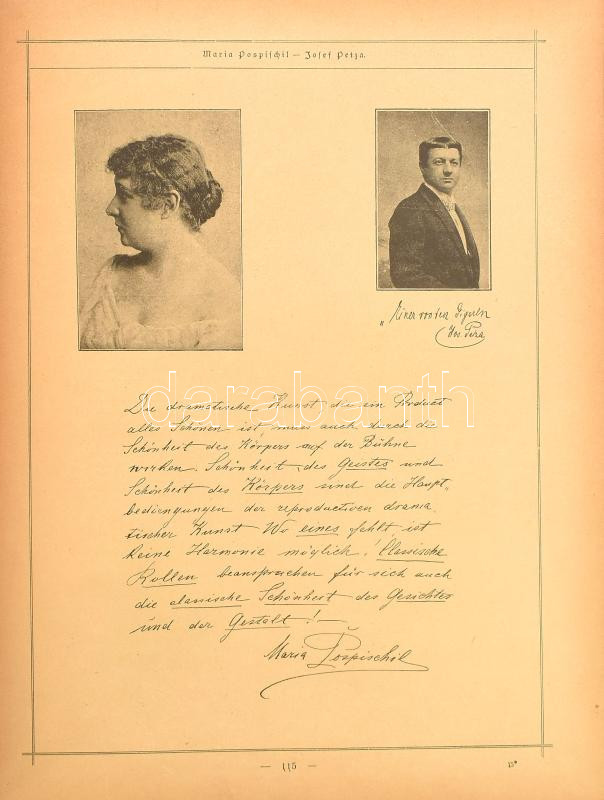 Maria Pospischil — Josef Petza.
"Einer von den
Jos. Petza
darabanth
Die dramatische Kunst die ein Product
alles Schönen ist, muss auch durch die
Schönheit des Körpers auf der Bühne
wirken. Schönheit des Geistes und
Schönheit des Körpers sind die Haupt„
bedingungen der reproductiven drama„
tischer Kunst Wo eines fehlt ist
keine Harmonie möglich! Classische
Rollen beanspruchen für sich auch
die classische Schönheit des Gesichtes
und der Gestalt! —
Maria Pospischil
— 115 —
15*